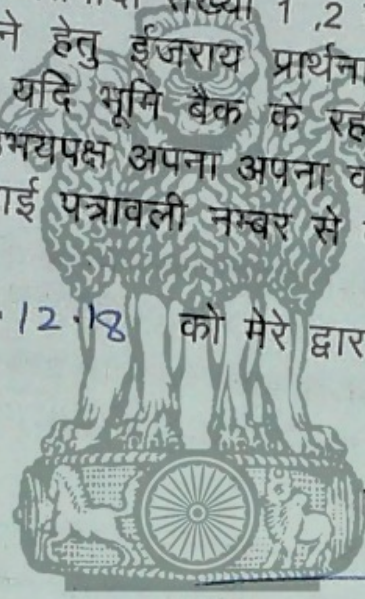 संख्या 1 ,2
ने हेतु ईजराय प्रार्थना
यदि भूमि बैक के रह
भयपक्ष अपना अपना व
ाई पत्रावली नम्बर से
12.18 को मेरे द्वार